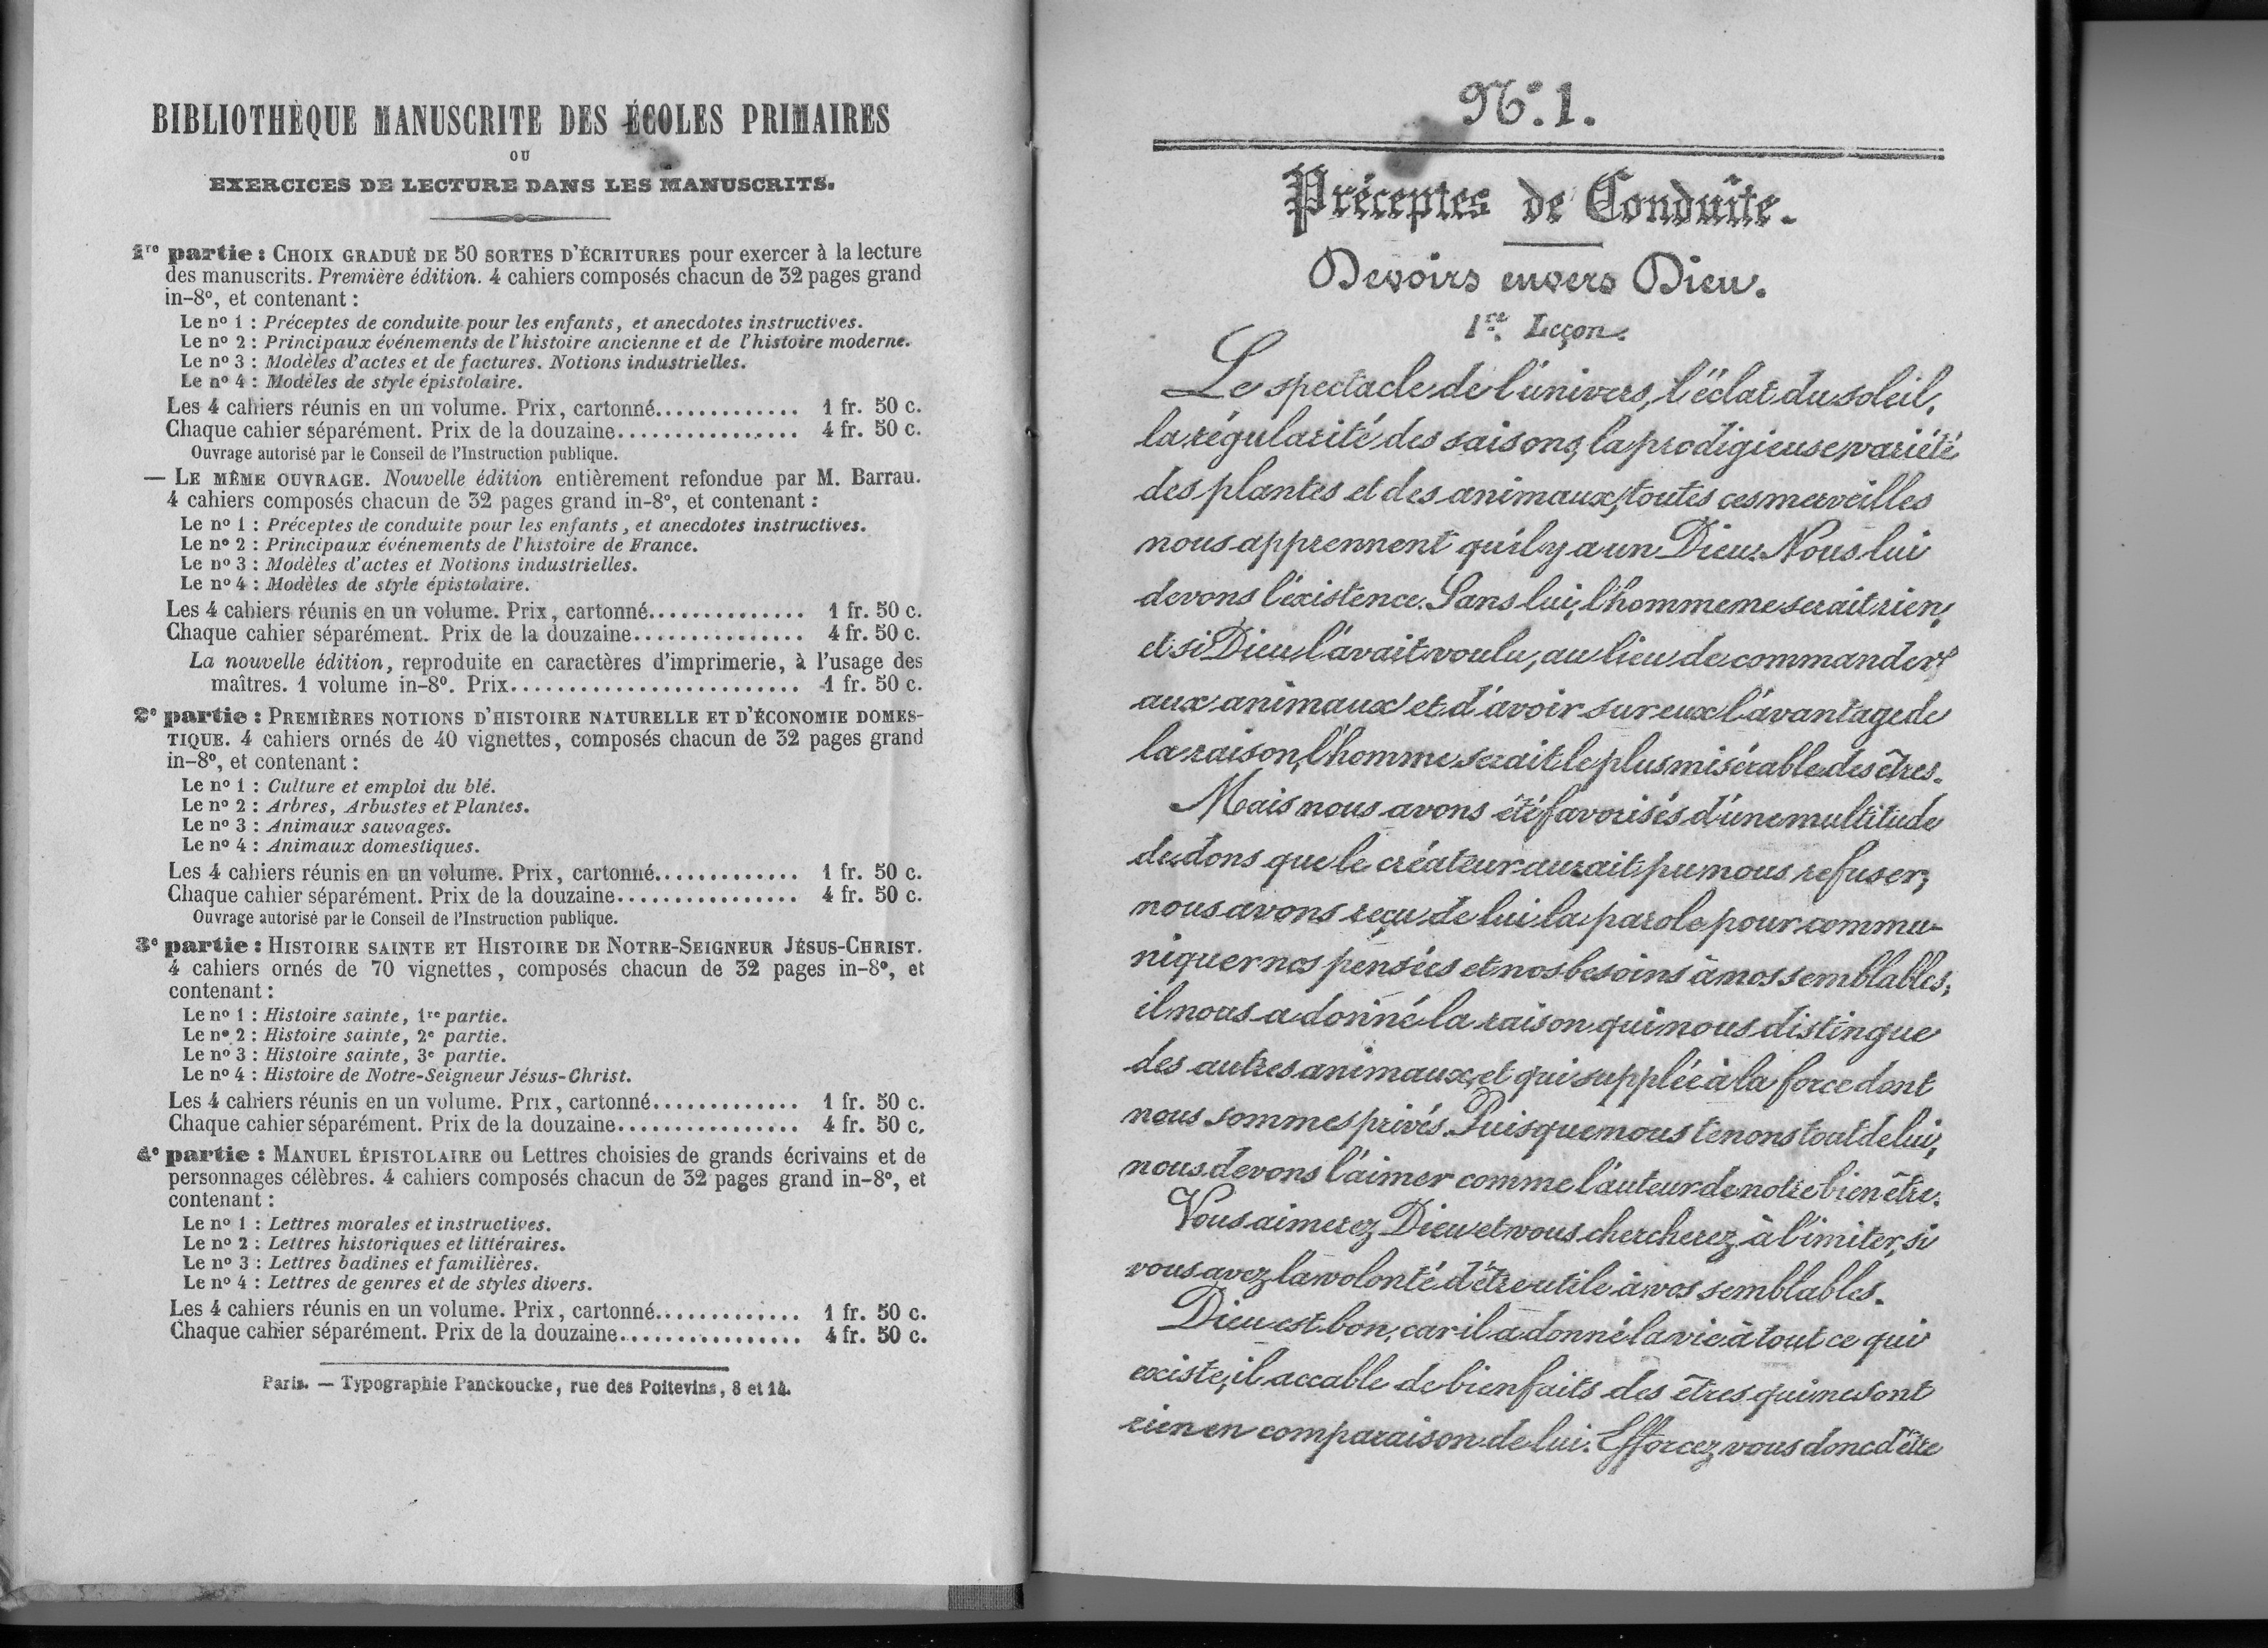 BIBLIOTHÈQUE MANUSCRITE DES ÉCOLES PRIMAIRES
OU
EXERCICES DE LECTURE DANS LES MANUSCRITS.
1re partie : CHOIX GRADUÉ DE 50 SORTES D'ÉCRITURES pour exercer à la lecture
des manuscrits. Première édition. 4 cahiers composés chacun de 32 pages grand
in-8º, et contenant :
Le nº 1 : Préceptes de conduite pour les enfants, et anecdotes instructives.
Le nº 2 : Principaux événements de l'histoire ancienne et de l'histoire moderne.
Le nº 3 : Modèles d'actes et de factures. Notions industrielles.
Le nº 4 : Modèles de style épistolaire.
Les 4 cahiers réunis en un volume. Prix, cartonné............. 1 fr. 50 c.
Chaque cahier séparément. Prix de la douzaine................ 4 fr. 50 c.
Ouvrage autorisé par le Conseil de l'Instruction publique.
— LE MÊME OUVRAGE. Nouvelle édition entièrement refondue par M. Barrau.
4 cahiers composés chacun de 32 pages grand in-8º, et contenant :
Le nº 1 : Préceptes de conduite pour les enfants, et anecdotes instructives.
Le nº 2 : Principaux événements de l'histoire de France.
Le nº 3 : Modèles d'actes et Notions industrielles.
Le nº 4 : Modèles de style épistolaire.
Les 4 cahiers réunis en un volume. Prix, cartonné.............. 1 fr. 50 c.
Chaque cahier séparément. Prix de la douzaine............... 4 fr. 50 c.
La nouvelle édition, reproduite en caractères d'imprimerie, à l'usage des
maîtres. 1 volume in-8º. Prix.......................... 1 fr. 50 c.
2e partie : PREMIÈRES NOTIONS D'HISTOIRE NATURELLE ET D'ÉCONOMIE DOMES-
TIQUE. 4 cahiers ornés de 40 vignettes, composés chacun de 32 pages grand
in-8º, et contenant :
Le nº 1 : Culture et emploi du blé.
Le nº 2 : Arbres, Arbustes et Plantes.
Le nº 3 : Animaux sauvages.
Le nº 4 : Animaux domestiques.
Les 4 cahiers réunis en un volume. Prix, cartonné............. 1 fr. 50 c.
Chaque cahier séparément. Prix de la douzaine................ 4 fr. 50 c.
Ouvrage autorisé par le Conseil de l'Instruction publique.
3e partie : HISTOIRE SAINTE ET HISTOIRE DE NOTRE-SEIGNEUR JÉSUS-CHRIST.
4 cahiers ornés de 70 vignettes, composés chacun de 32 pages in-8º, et
contenant :
Le nº 1 : Histoire sainte, 1re partie.
Le nº 2 : Histoire sainte, 2e partie.
Le nº 3 : Histoire sainte, 3e partie.
Le nº 4 : Histoire de Notre-Seigneur Jésus-Christ.
Les 4 cahiers réunis en un volume. Prix, cartonné............. 1 fr. 50 c.
Chaque cahier séparément. Prix de la douzaine................ 4 fr. 50 c.
4e partie : MANUEL ÉPISTOLAIRE ou Lettres choisies de grands écrivains et de
personnages célèbres. 4 cahiers composés chacun de 32 pages grand in-8º, et
contenant :
Le nº 1 : Lettres morales et instructives.
Le nº 2 : Lettres historiques et littéraires.
Le nº 3 : Lettres badines et familières.
Le nº 4 : Lettres de genres et de styles divers.
Les 4 cahiers réunis en un volume. Prix, cartonné............. 1 fr. 50 c.
Chaque cahier séparément. Prix de la douzaine................ 4 fr. 50 c.
Paris. — Typographie Panckoucke, rue des Poitevins, 8 et 14.
Nº. 1.
Préceptes de Conduite.
Devoirs envers Dieu.
1re. Leçon.
Le spectacle de l'univers, l'éclat du soleil,
la régularité des saisons, la prodigieuse variété
des plantes et des animaux, toutes ces merveilles
nous apprennent qu'il y a un Dieu. Nous lui
devons l'existence. Sans lui, l'homme ne serait rien,
et si Dieu l'avait voulu, au lieu de commander
aux animaux et d'avoir sur eux l'avantage de
la raison, l'homme serait le plus misérable des êtres.
Mais nous avons été favorisés d'une multitude
de dons que le créateur aurait pu nous refuser;
nous avons reçu de lui la parole pour commu-
niquer nos pensées et nos besoins à nos semblables;
il nous a donné la raison qui nous distingue
des autres animaux, et qui supplée à la force dont
nous sommes privés. Puisque nous tenons tout de lui,
nous devons l'aimer comme l'auteur de notre bien être.
Vous aimerez Dieu et vous chercherez à l'imiter, si
vous avez la volonté d'être utile à vos semblables.
Dieu est bon, car il a donné la vie à tout ce qui
existe, il accable de bienfaits des êtres qui ne sont
rien en comparaison de lui. Efforcez vous donc d'être